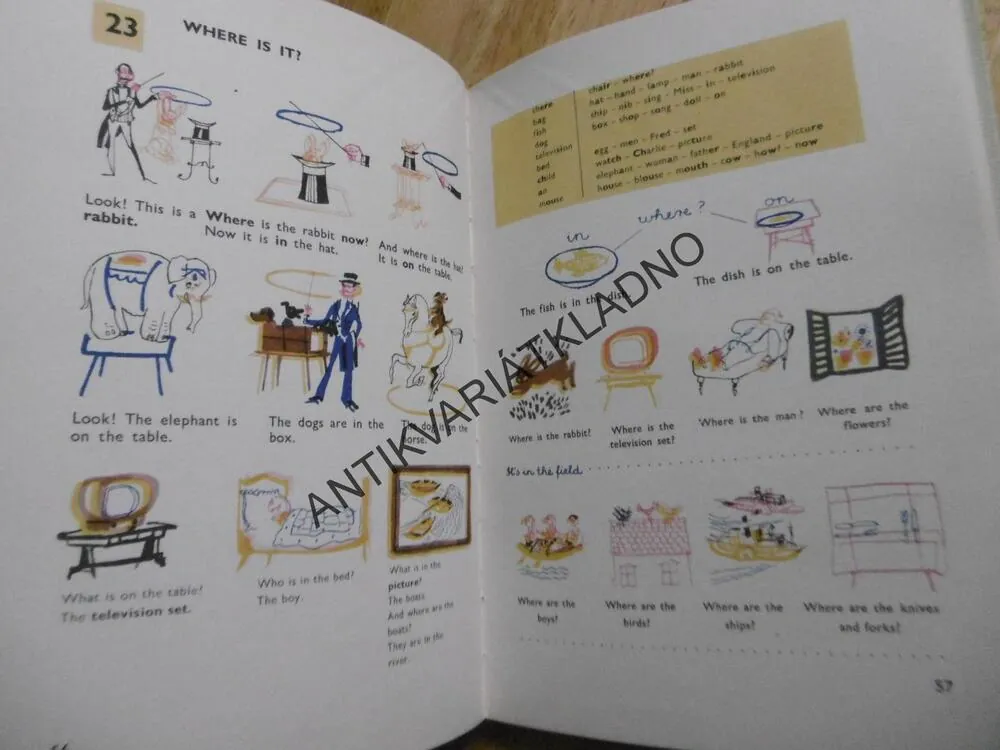 23
WHERE IS IT?
Look! This is a
rabbit.
Where is the rabbit now?
Now it is in the hat.
And where is the hat?
It is on the table.
Look! The elephant is
on the table.
The dogs are in the
box.
The dog is on the
horse.
What is on the table?
The television set.
Who is in the bed?
The boy.
What is in the
picture?
The boats.
And where are the
boats?
They are in the
river.
there chair – where?
bag hat – hand – lamp – man – rabbit
fish ship – nib – sing – Miss – in – television
dog box – shop – song – doll – on
television
bed egg – men – Fred – set
child watch – Charlie – picture
an elephant – woman – father – England – picture
mouse house – blouse – mouth – cow – how? – now
where?
in
on
The fish is in the dish.
The dish is on the table.
Where is the rabbit?
Where is the
television set?
Where is the man?
Where are the
flowers?
It's in the field
Where are the
boys?
Where are the
birds?
Where are the
ships?
Where are the knives
and forks?
57
ANTIKVARIÁTKLADNO